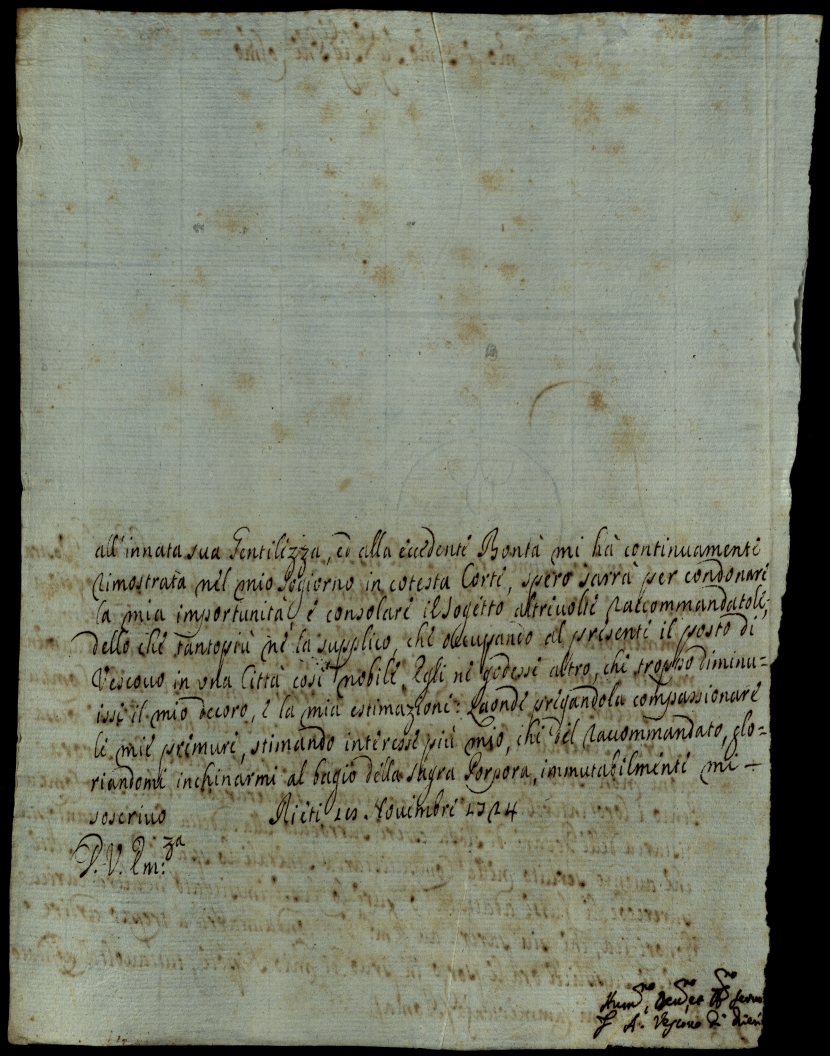 all'innata sua Gentilezza, ed alla eccedente Bontà mi hà continuamente
dimostrata nel mio sogiorno in cotesta Corte, spero sarrà per condonare
la mia importunità, e consolare il sogetto altrevolte raccommandatole,
dello che tantopiù ne la supplico, che occupando al presente il posto di
Vescovo in una Città così nobile, Egli ne godesse altro, che troppo diminu=
isse il mio decoro, e la mia estimazione: Laonde pregandola compassionare
le mie premure, stimando interesse più mio, che del raccommandato, glo=
riandomi inchinarmi al bagio della sagra Porpora, immutabilmente mi
soscrivo Rieti Novembre 1724
D. V. Em.za
Hum.mo
A. Vescovo di Rieti